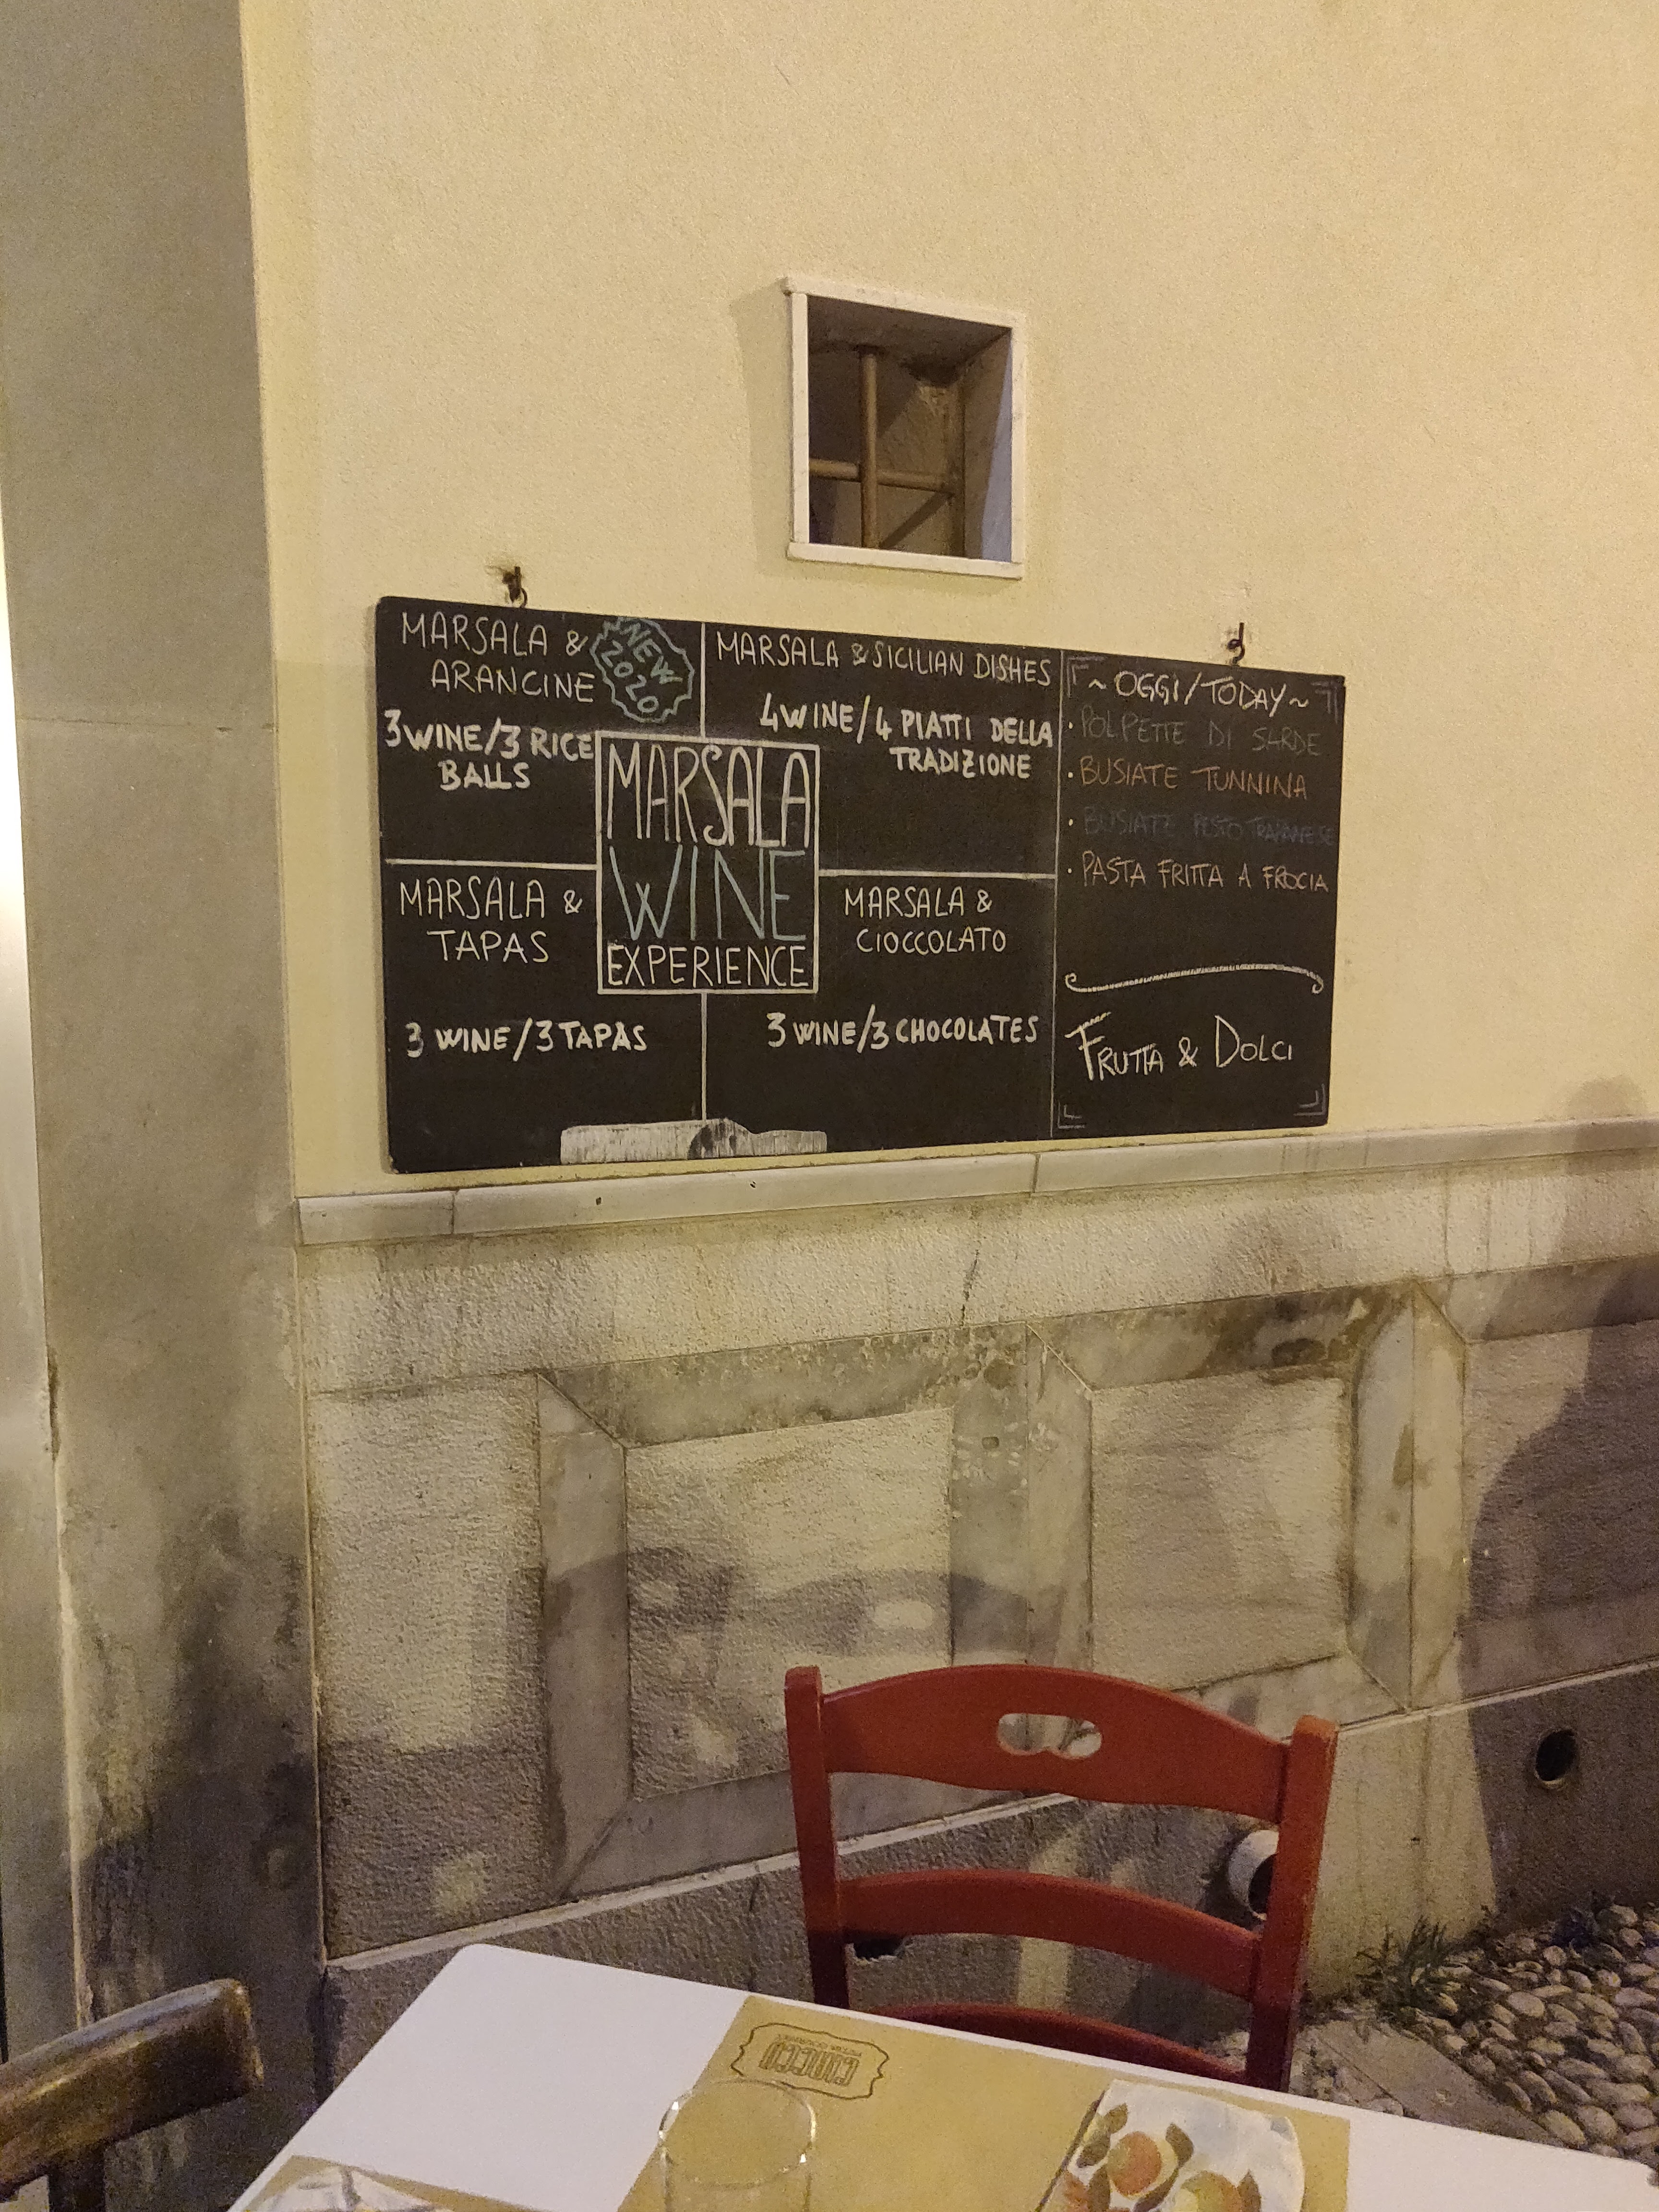 MARSALA &
ARANCINE
NEW
2020
3 WINE/3 RICE
BALLS
MARSALA & SICILIAN DISHES
4 WINE/4 PIATTI DELLA
TRADIZIONE
MARSALA
WINE
EXPERIENCE
MARSALA &
TAPAS
3 WINE/3 TAPAS
MARSALA &
CIOCCOLATO
3 WINE/3 CHOCOLATES
~ OGGI/TODAY ~
· POLPETTE DI SARDE
· BUSIATE TUNNINA
· BUSIATE PESTO TRAPANESE
· PASTA FRITTA A FROCIA
FRUTTA & DOLCI